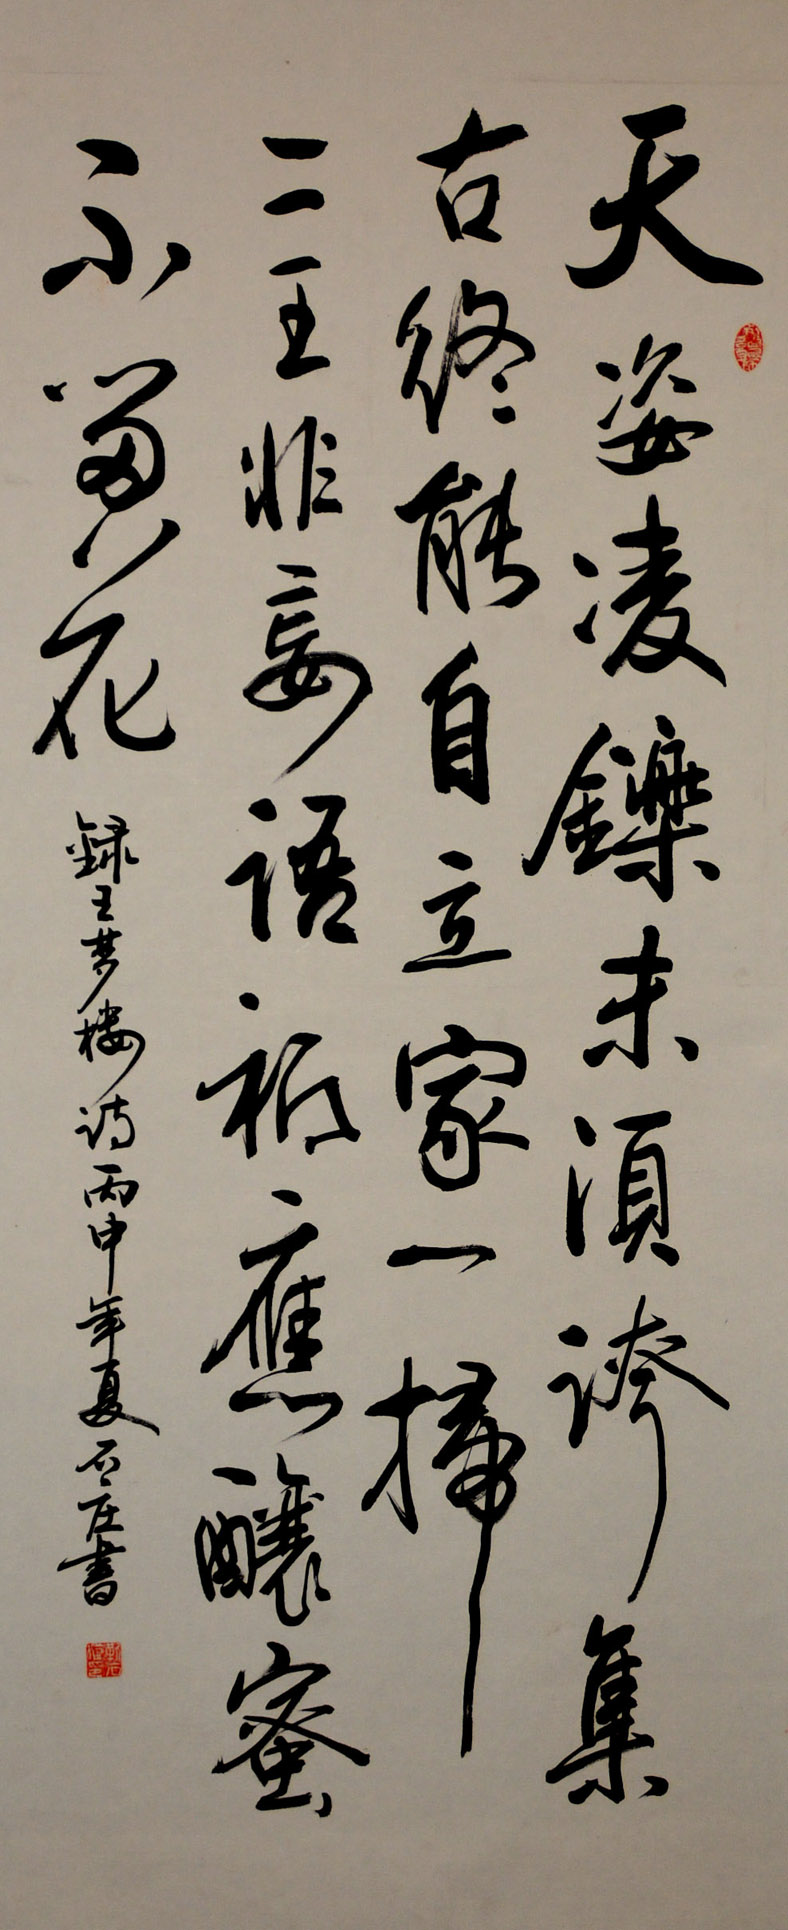 天姿凌鑠未須誇集
古終能自立家一掃
二王非妄語祗應釀蜜
不花
錄王夢樓詩丙申年夏石庄書